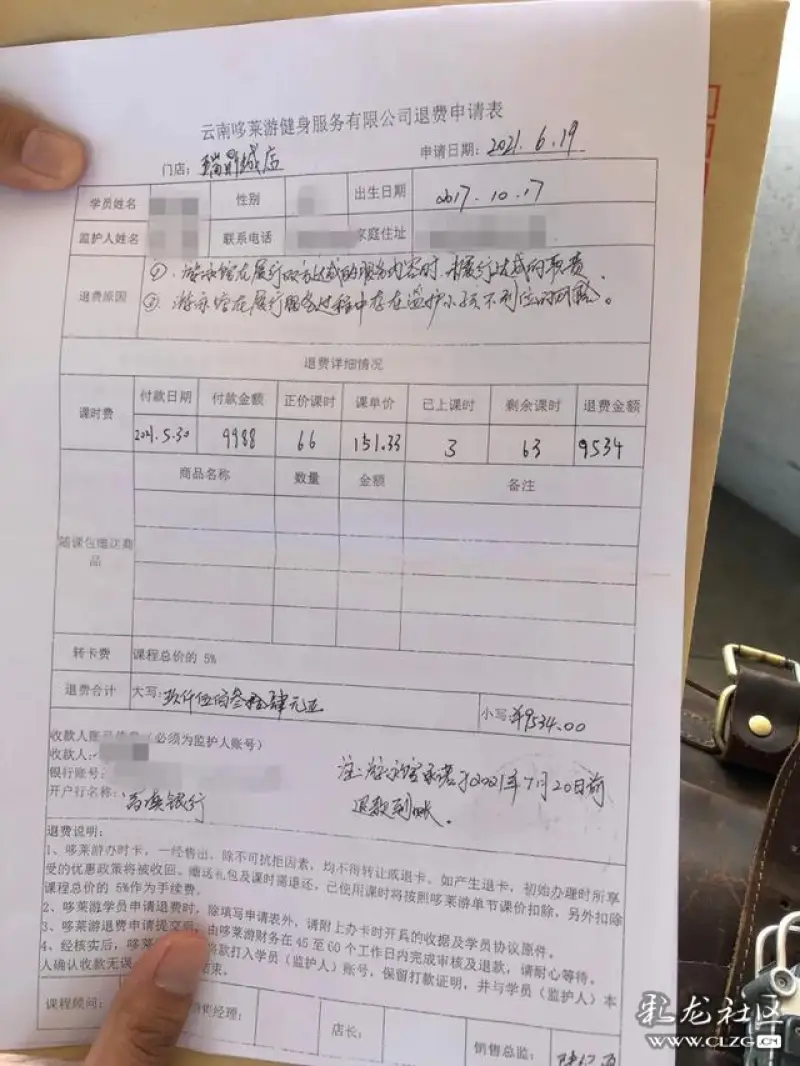 云南哆莱游健身服务有限公司退费申请表
门店：瑞鼎城店 申请日期：2021.6.19
学员姓名 性别 出生日期 2017.10.17
监护人姓名 联系电话 家庭住址
退费原因 ①、游泳馆在履行双方达成的服务内容时，未履行达成的职责
②、游泳馆在履行服务过程中存在监护小孩不到位的问题。
退费详细情况
课时费 付款日期 付款金额 正价课时 课单价 已上课时 剩余课时 退费金额
2021.5.30 9988 66 151.33 3 63 9534
随课包赠送商品 商品名称 数量 金额 备注
转卡费 课程总价的 5%
退费合计 大写：玖仟伍佰叁拾肆元正 小写：¥9534.00
收款人账号信息（必须为监护人账号）
收款人：
银行账号：
开户行名称：
注：游泳馆承诺于2021年7月20日前
退款到账。
退费说明：
1、哆莱游办时卡，一经售出，除不可抗拒因素，均不得转让或退卡。如产生退卡，初始办理时所享
受的优惠政策将被收回。赠送礼包及课时需退还，已使用课时将按照哆莱游单节课价扣除，另外扣除
课程总价的 5%作为手续费。
2、哆莱游学员申请退费时，除填写申请表外，请附上办卡时开具的收据及学员协议原件。
3、哆莱游退费申请提交后，由哆莱游财务在 45 至 60 个工作日内完成审核及退款，请耐心等待。
4、经核实后，哆莱 将款打入学员（监护人）账号，保留打款证明，并与学员（监护人）本
人确认收款无误 结束。
课程顾问： 经理： 店长： 销售总监：
彩龙社区
WWW.CLZG.CN